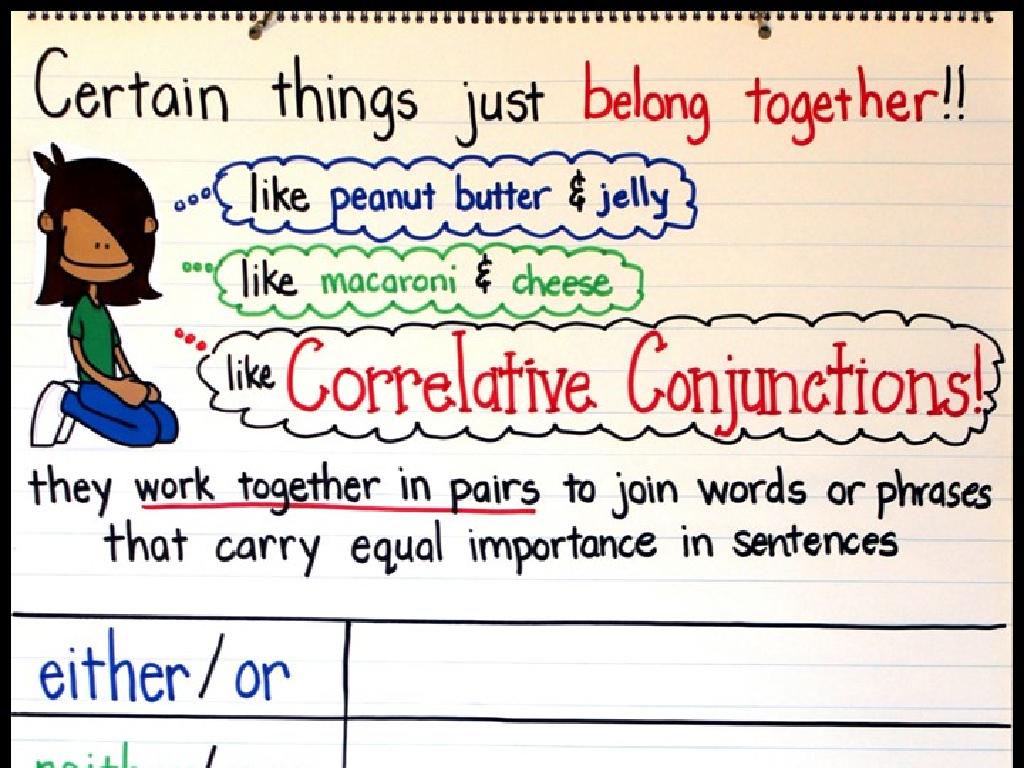 Certain things just belong together!!
like peanut butter & jelly
like macaroni & cheese
like Correlative Conjunctions!
they work together in pairs to join words or phrases
that carry equal importance in sentences
either/or